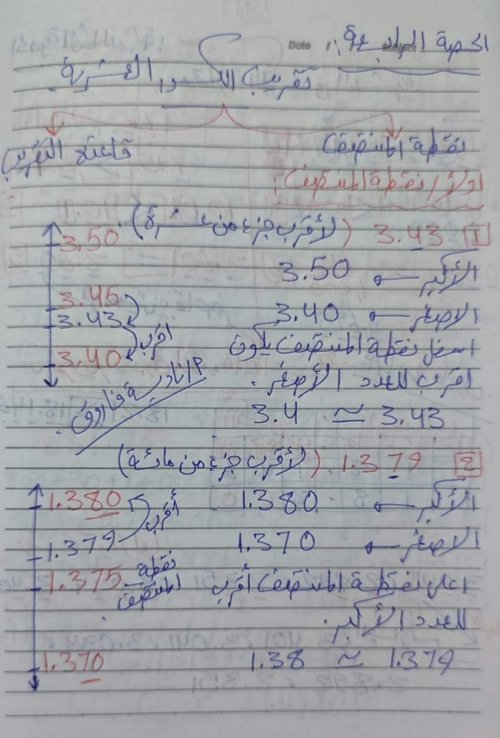 الحصة الرابعة:
Date
تقريب الكسور العشرية
نقطة المنتصف
قاعدة التقريب
أولاً / نقطة المنتصف:
1 3.43 (لأقرب جزء من عشرة).
3.50
الأكبر ← 3.50
3.45
الأصغر ← 3.40
3.43
أقرب
اسفل نقطة المنتصف يكون
3.40
اقرب للعدد الأصغر.
3.43 ≃ 3.4
م/نادية فاروق.
2 1.379 (لأقرب جزء من مائة)
الأكبر ← 1.380
1.380
أقرب
الاصغر ← 1.370
1.379
1.375 نقطة المنتصف.
اعلى نقطة المنتصف أقرب
للعدد الأكبر.
1.379 ≃ 1.38
1.370